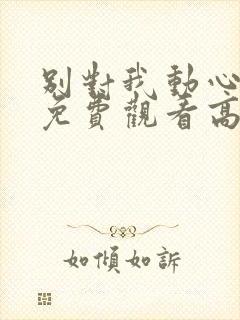 別對我動心
免費觀看高
如傾如訴